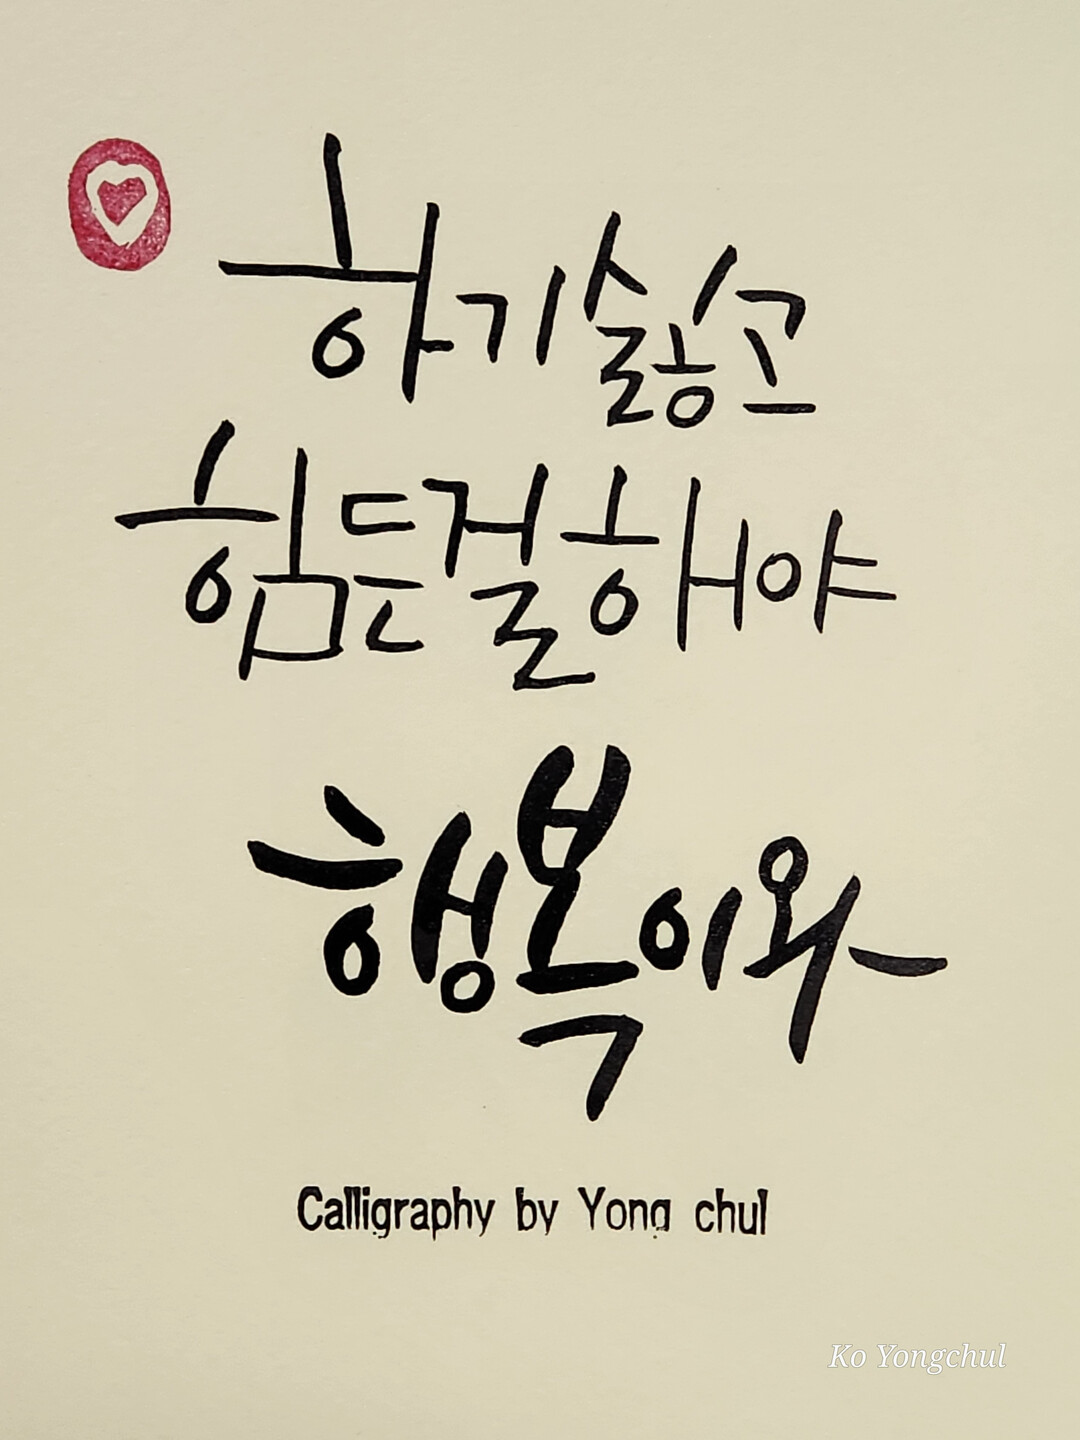 하기싫고
힘든걸해야
행복이와
Calligraphy by Yong chul
Ko Yongchul